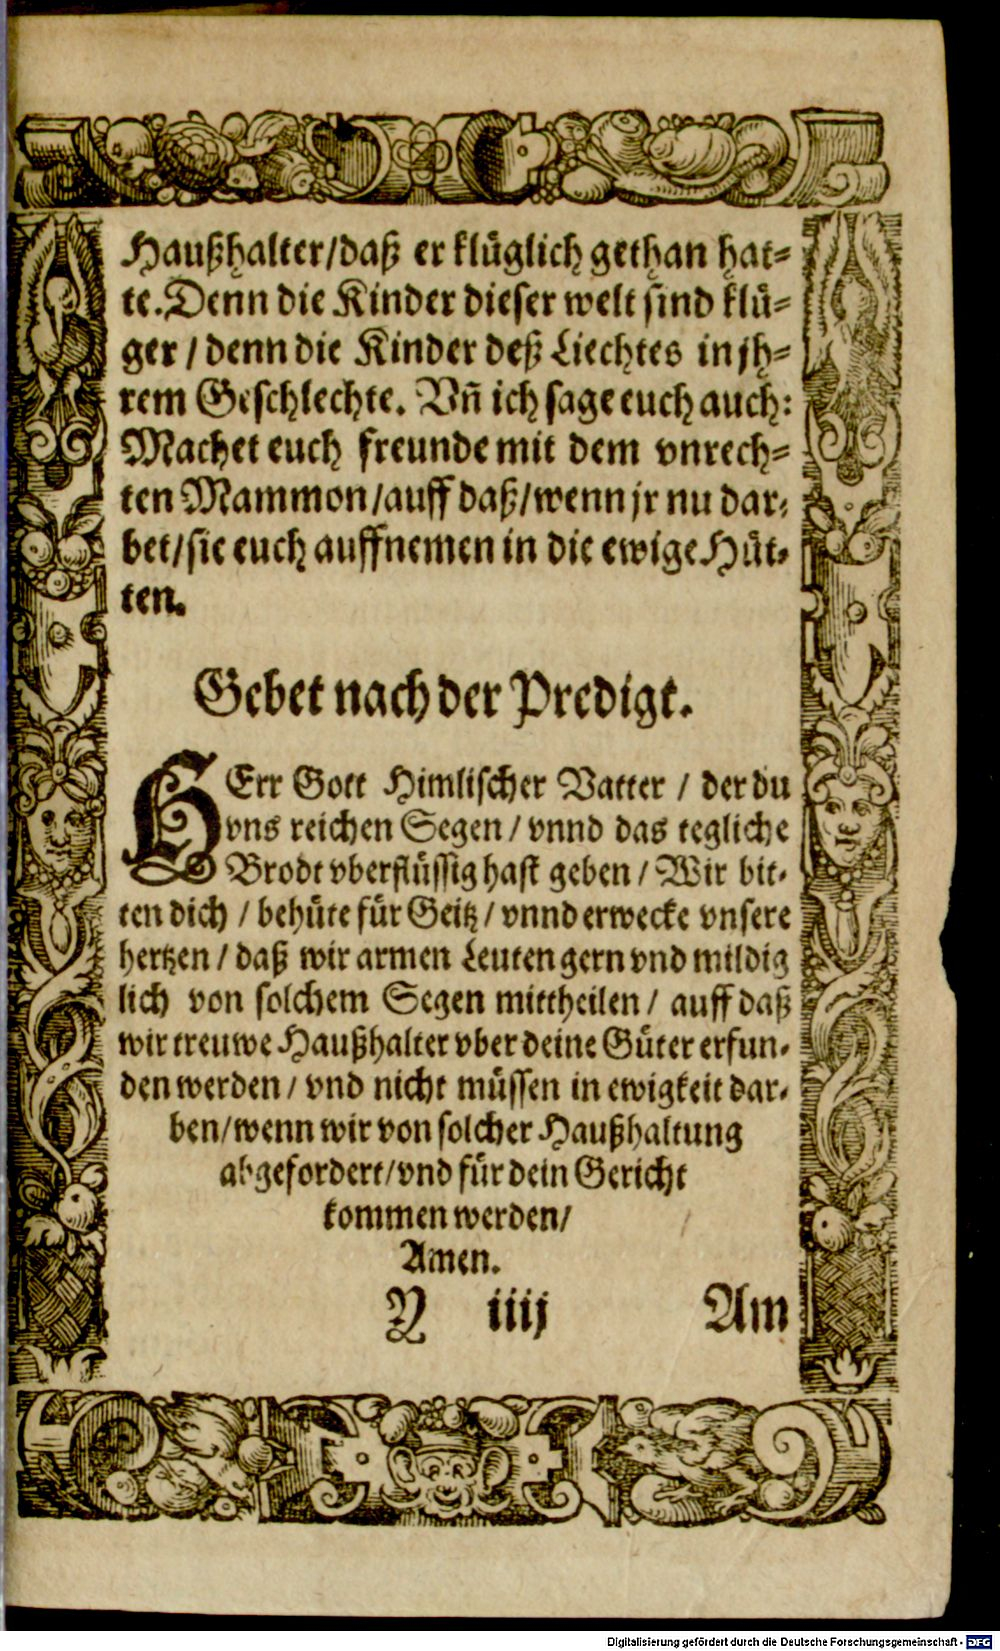 Haußhalter/daß er klüglich gethan hat⸗
te. Denn die Kinder dieser welt sind klü⸗
ger / denn die Kinder deß Liechtes in jh⸗
rem Geschlechte. Vñ ich sage euch auch:
Machet euch freunde mit dem vnrech⸗
ten Mammon/auff daß/wenn jr nu dar⸗
bet/sie euch auffnemen in die ewige Hüt⸗
ten.
Gebet nach der Predigt.
HErr Gott Himlischer Vatter / der du
vns reichen Segen / vnnd das tegliche
Brodt vberflüssig hast geben / Wir bit⸗
ten dich / behüte für Geitz / vnnd erwecke vnsere
hertzen / daß wir armen Leuten gern vnd mildig
lich von solchem Segen mittheilen / auff daß
wir treuwe Haußhalter vber deine Güter erfun⸗
den werden / vnd nicht müssen in ewigkeit dar⸗
ben/wenn wir von solcher Haußhaltung
abgefordert/vnd für dein Gericht
kommen werden/
Amen.
Y iiij Am
Digitalisierung gefördert durch die Deutsche Forschungsgemeinschaft - DFG